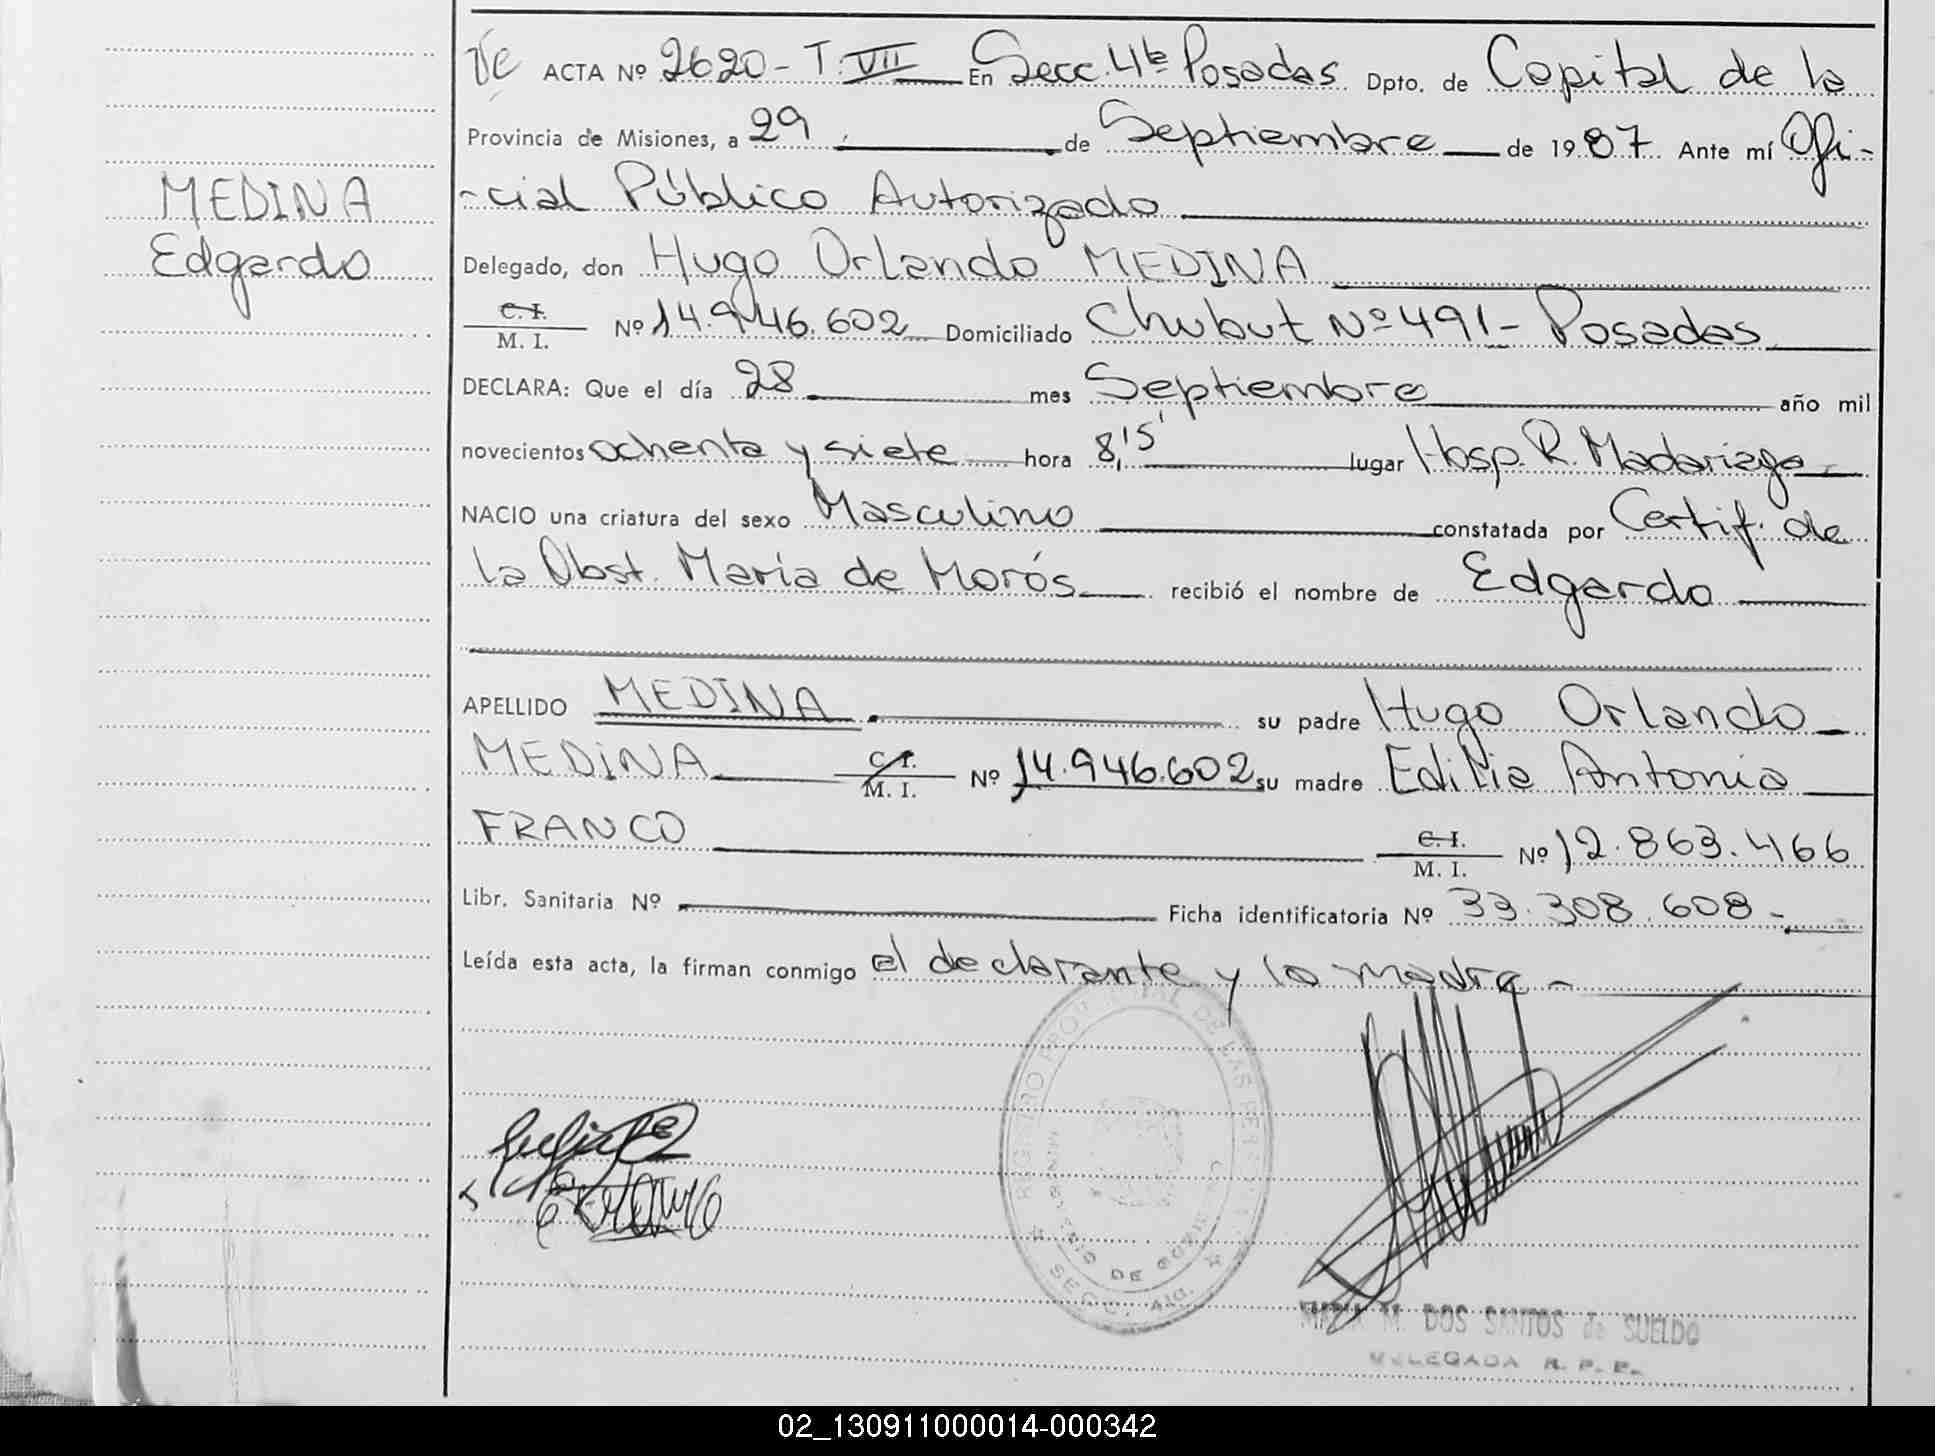 MEDINA
Edgardo
ACTA Nº 2620 - T. VII En Secc. 4ta Posadas Dpto. de Capital de la
Provincia de Misiones, a 29 de Septiembre de 1987 Ante mí Ofi-
-cial Público Autorizado
Delegado, don Hugo Orlando MEDINA
C. I.
M. I. Nº 14.946.602 Domiciliado Chubut Nº 491 - Posadas
DECLARA: Que el día 28 mes Septiembre año mil
novecientos ochenta y siete hora 8,15' lugar Hosp. R. Madariaga
NACIO una criatura del sexo Masculino constatada por Certif. de
la Obst. María de Morós recibió el nombre de Edgardo
APELLIDO MEDINA su padre Hugo Orlando
MEDINA C. I. M. I. Nº 14.946.602 su madre Edilia Antonia
FRANCO C. I. M. I. Nº 12.863.466
Libr. Sanitaria Nº Ficha identificatoria Nº 33.308.608 -
Leída esta acta, la firman conmigo el declarante y la madre -
REGISTRO PROVINCIAL DE LAS PERSONAS
MINISTERIO DE GOBIERNO
M. DOS SANTOS de SUELDO
DELEGADA R. P. P.
02_130911000014-000342